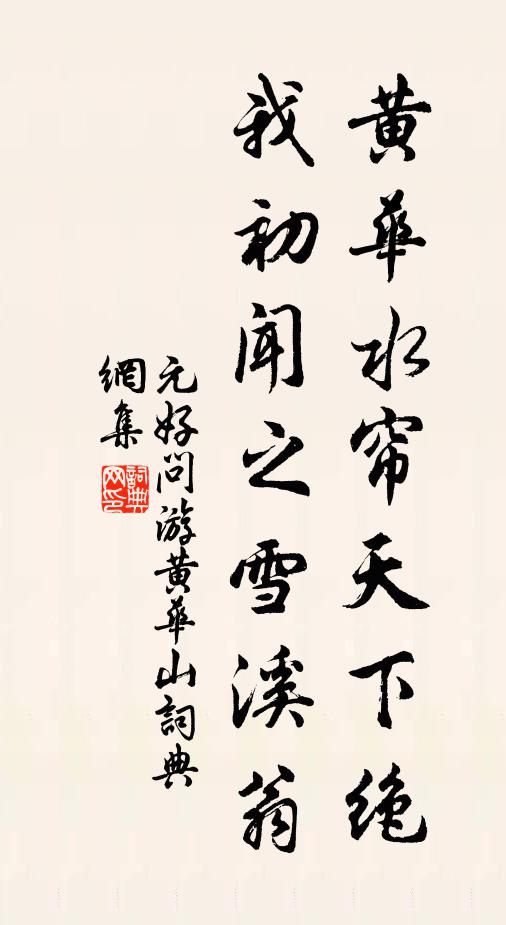 黄華水帘天下绝
我初闻之雪溪翁
元好问游黄華山詞典
網集
詞典
网印